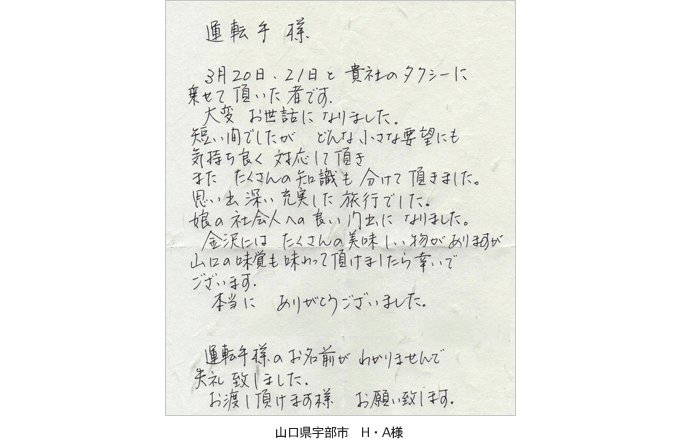 運転手 様
3月20日、21日と 貴社のタクシーに
乗せて頂いた者です.
大変 お世話になりました.
短い間でしたが どんな小さな要望にも
気持ち良く 対応して頂き
また たくさんの知識も 分けて頂きました。
思い出深い充実した 旅行でした.
娘の社会人への良い門出に なりました。
金沢には たくさんの美味しい物がありますが
山口の味覚も味わって頂けましたら幸いで
ございます.
本当に ありがとうございました.
運転手様のお名前が わかりませんで
失礼致しました.
お渡し頂けます様 お願い致します.
山口県宇部市 H・A様